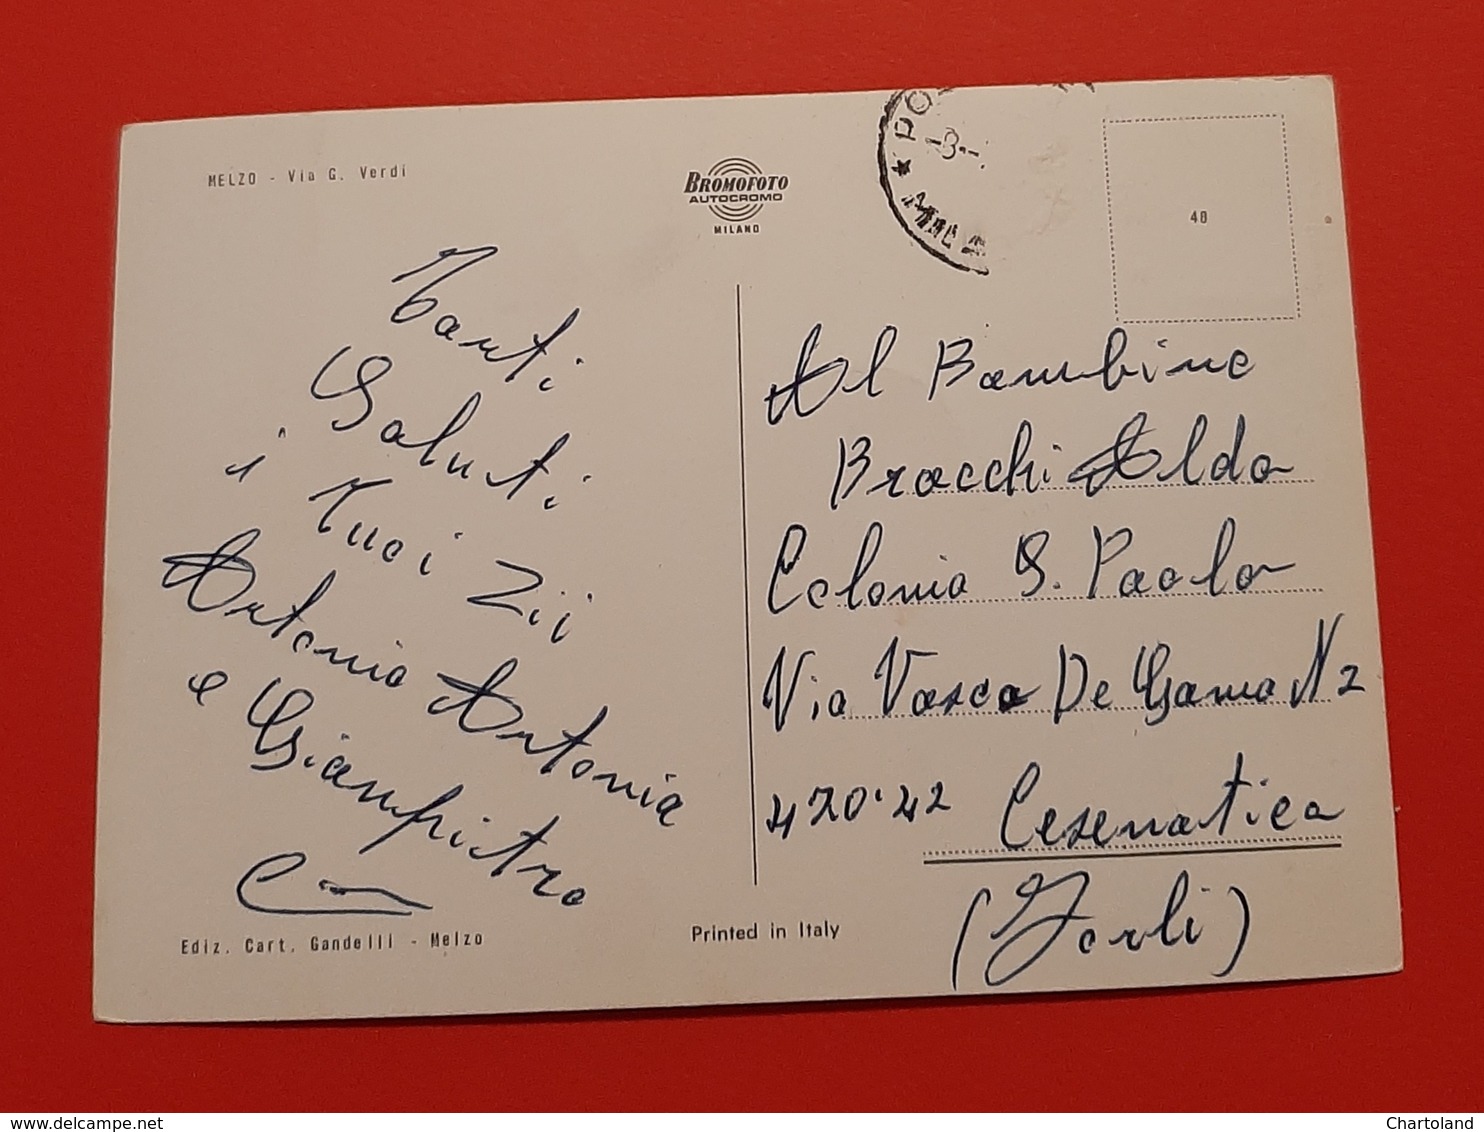 MELZO - Via G. Verdi
BROMOFOTO
AUTOCROMO
MILANO
40
Tanti
Saluti
i Tuoi Zii
Antonio Antonia
e Giampietro
Ciao
Ediz. Cart. Gandelli - Melzo
Printed in Italy
Al Bambino
Bracchi Aldo
Colonia S. Paolo
Via Vasco De Gama N 2
47042 Cesenatico
(Forlì)
www.delcampe.net
Chartoland